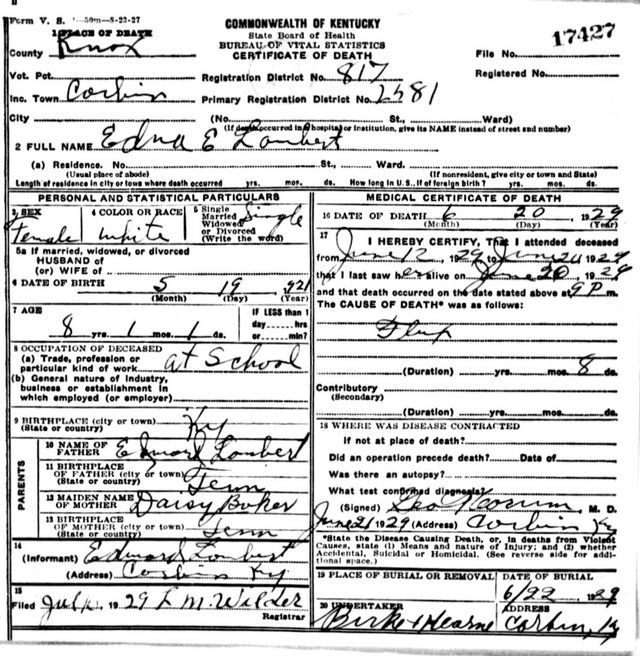 Form V. S. 1-50m-8-23-27
COMMONWEALTH OF KENTUCKY
State Board of Health
BUREAU OF VITAL STATISTICS
CERTIFICATE OF DEATH
1 PLACE OF DEATH
County Knox
File No. 17427
Vot. Pct.
Registration District No. 817
Registered No.
Inc. Town Corbin
Primary Registration District No. 2481
City (No. St., Ward)
(If death occurred in a hospital or institution, give its NAME instead of street and number)
2 FULL NAME Edna E Lambert
(a) Residence. No. St., Ward.
(Usual place of abode) (If nonresident, give city or town and State)
Length of residence in city or town where death occurred yrs. mos. ds. How long in U. S., if of foreign birth? yrs. mos. ds.
PERSONAL AND STATISTICAL PARTICULARS
3 SEX
female
4 COLOR OR RACE
White
5 Single
Married
Widowed
or Divorced
(Write the word)
Single
5a If married, widowed, or divorced
HUSBAND of
(or) WIFE of
6 DATE OF BIRTH 5 19 921
(Month) (Day) (Year)
7 AGE
8 yrs 1 mos. 1 ds.
IF LESS than 1
day hrs
or min?
8 OCCUPATION OF DECEASED
(a) Trade, profession or
particular kind of work at School
(b) General nature of industry,
business or establishment in
which employed (or employer)
9 BIRTHPLACE (city or town) Ky
(State or country)
PARENTS
10 NAME OF
FATHER Edward Lambert
11 BIRTHPLACE
OF FATHER (city or town)
(State or country) Tenn
12 MAIDEN NAME
OF MOTHER Daisy Baker
13 BIRTHPLACE
OF MOTHER (city or town)
(State or country) Tenn
14
(Informant) Edward Lambert
(Address) Corbin Ky
15
Filed July 1929 L M. Wilder
Registrar
MEDICAL CERTIFICATE OF DEATH
16 DATE OF DEATH 6 20 1929
(Month) (Day) (Year)
17 I HEREBY CERTIFY, That I attended deceased
from June 12, 1929 to June 20 1929
that I last saw her alive on June 20, 1929
and that death occurred on the date stated above at 9 P m.
The CAUSE OF DEATH* was as follows:
(Duration) yrs. mos. 8 ds.
Contributory
(Secondary)
(Duration) yrs. mos. ds.
18 WHERE WAS DISEASE CONTRACTED
If not at place of death?
Did an operation precede death? Date of
Was there an autopsy?
What test confirmed diagnosis?
(Signed) Geo M. D.
June 21 1929 (Address) Corbin Ky
*State the Disease Causing Death, or, in deaths from Violent
Causes, state (1) Means and nature of Injury; and (2) whether
Accidental, Suicidal or Homicidal. (See reverse side for addi-
tional space.)
19 PLACE OF BURIAL OR REMOVAL
DATE OF BURIAL
6/22 1929
20 UNDERTAKER
ADDRESS
Hearne Corbin, Ky